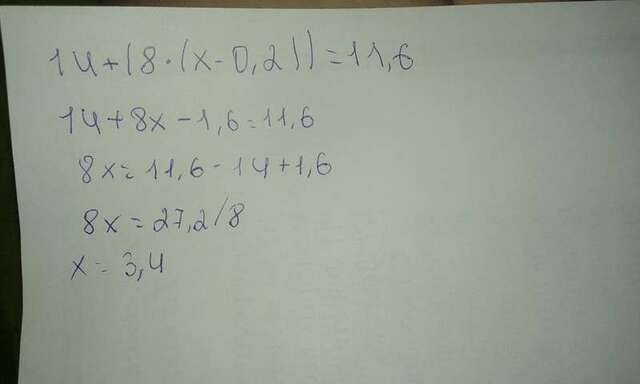 14+(8·(x-0,2))=11,6
14+8x-1,6=11,6
8x=11,6-14+1,6
8x=27,2/8
x=3,4